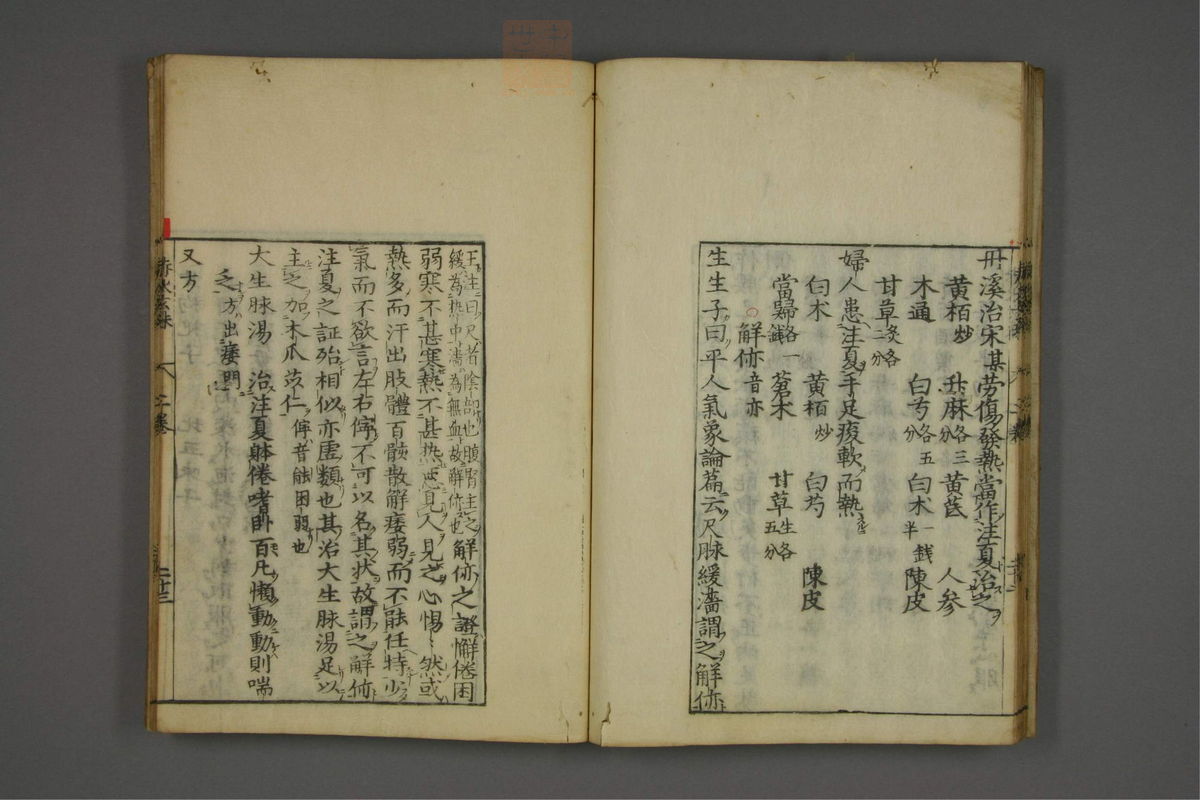 丹溪治宋某勞傷發熱當作注夏治之
黄栢炒 升麻各三分 黄茋 人参
木通 白芍各五分 白术一錢半 陳皮
甘草炙各二分
婦人患注夏手足痠軟而熱
白术 黄栢炒 白芍 陳皮
當歸各一錢 蒼木 甘草生各五分
○解㑊音亦
生生子曰平人氣象論篇云尺脉緩濇謂之解㑊
王注曰尺者陰部也腹腎主之
緩為热中濇為無血故解㑊也 解㑊之證懈倦困
弱寒不甚寒熱不甚热悪見人見之心惕〻然或
熱多而汗出肢體百骸散解痿弱而不能任持少
氣而不欲言左右停不可以名其状故謂之解㑊
注夏之証殆相似亦虚類也其治大生脉湯足以
主之加木爪苡仁 停音 困弱也
大生脉湯 治注夏躰倦嗜卧百凡懶動動則喘
乏方出痿門
又方
赤水玄珠 二卷 二十三